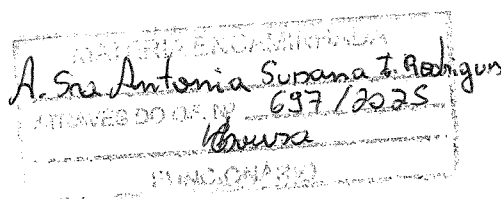 MATÉRIA ENCAMINHADA
A. Sra Antonia Susana T. Rodrigues
ATRAVÉS DO OF. Nº 697/2025
FUNCIONÁRIO